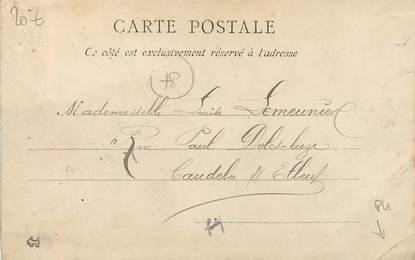 20 €
CARTE POSTALE
Ce côté est exclusivement réservé à l'adresse
78
Mademoiselle Louise Lemeunier
Rue Paul Delescluze
Caudebec